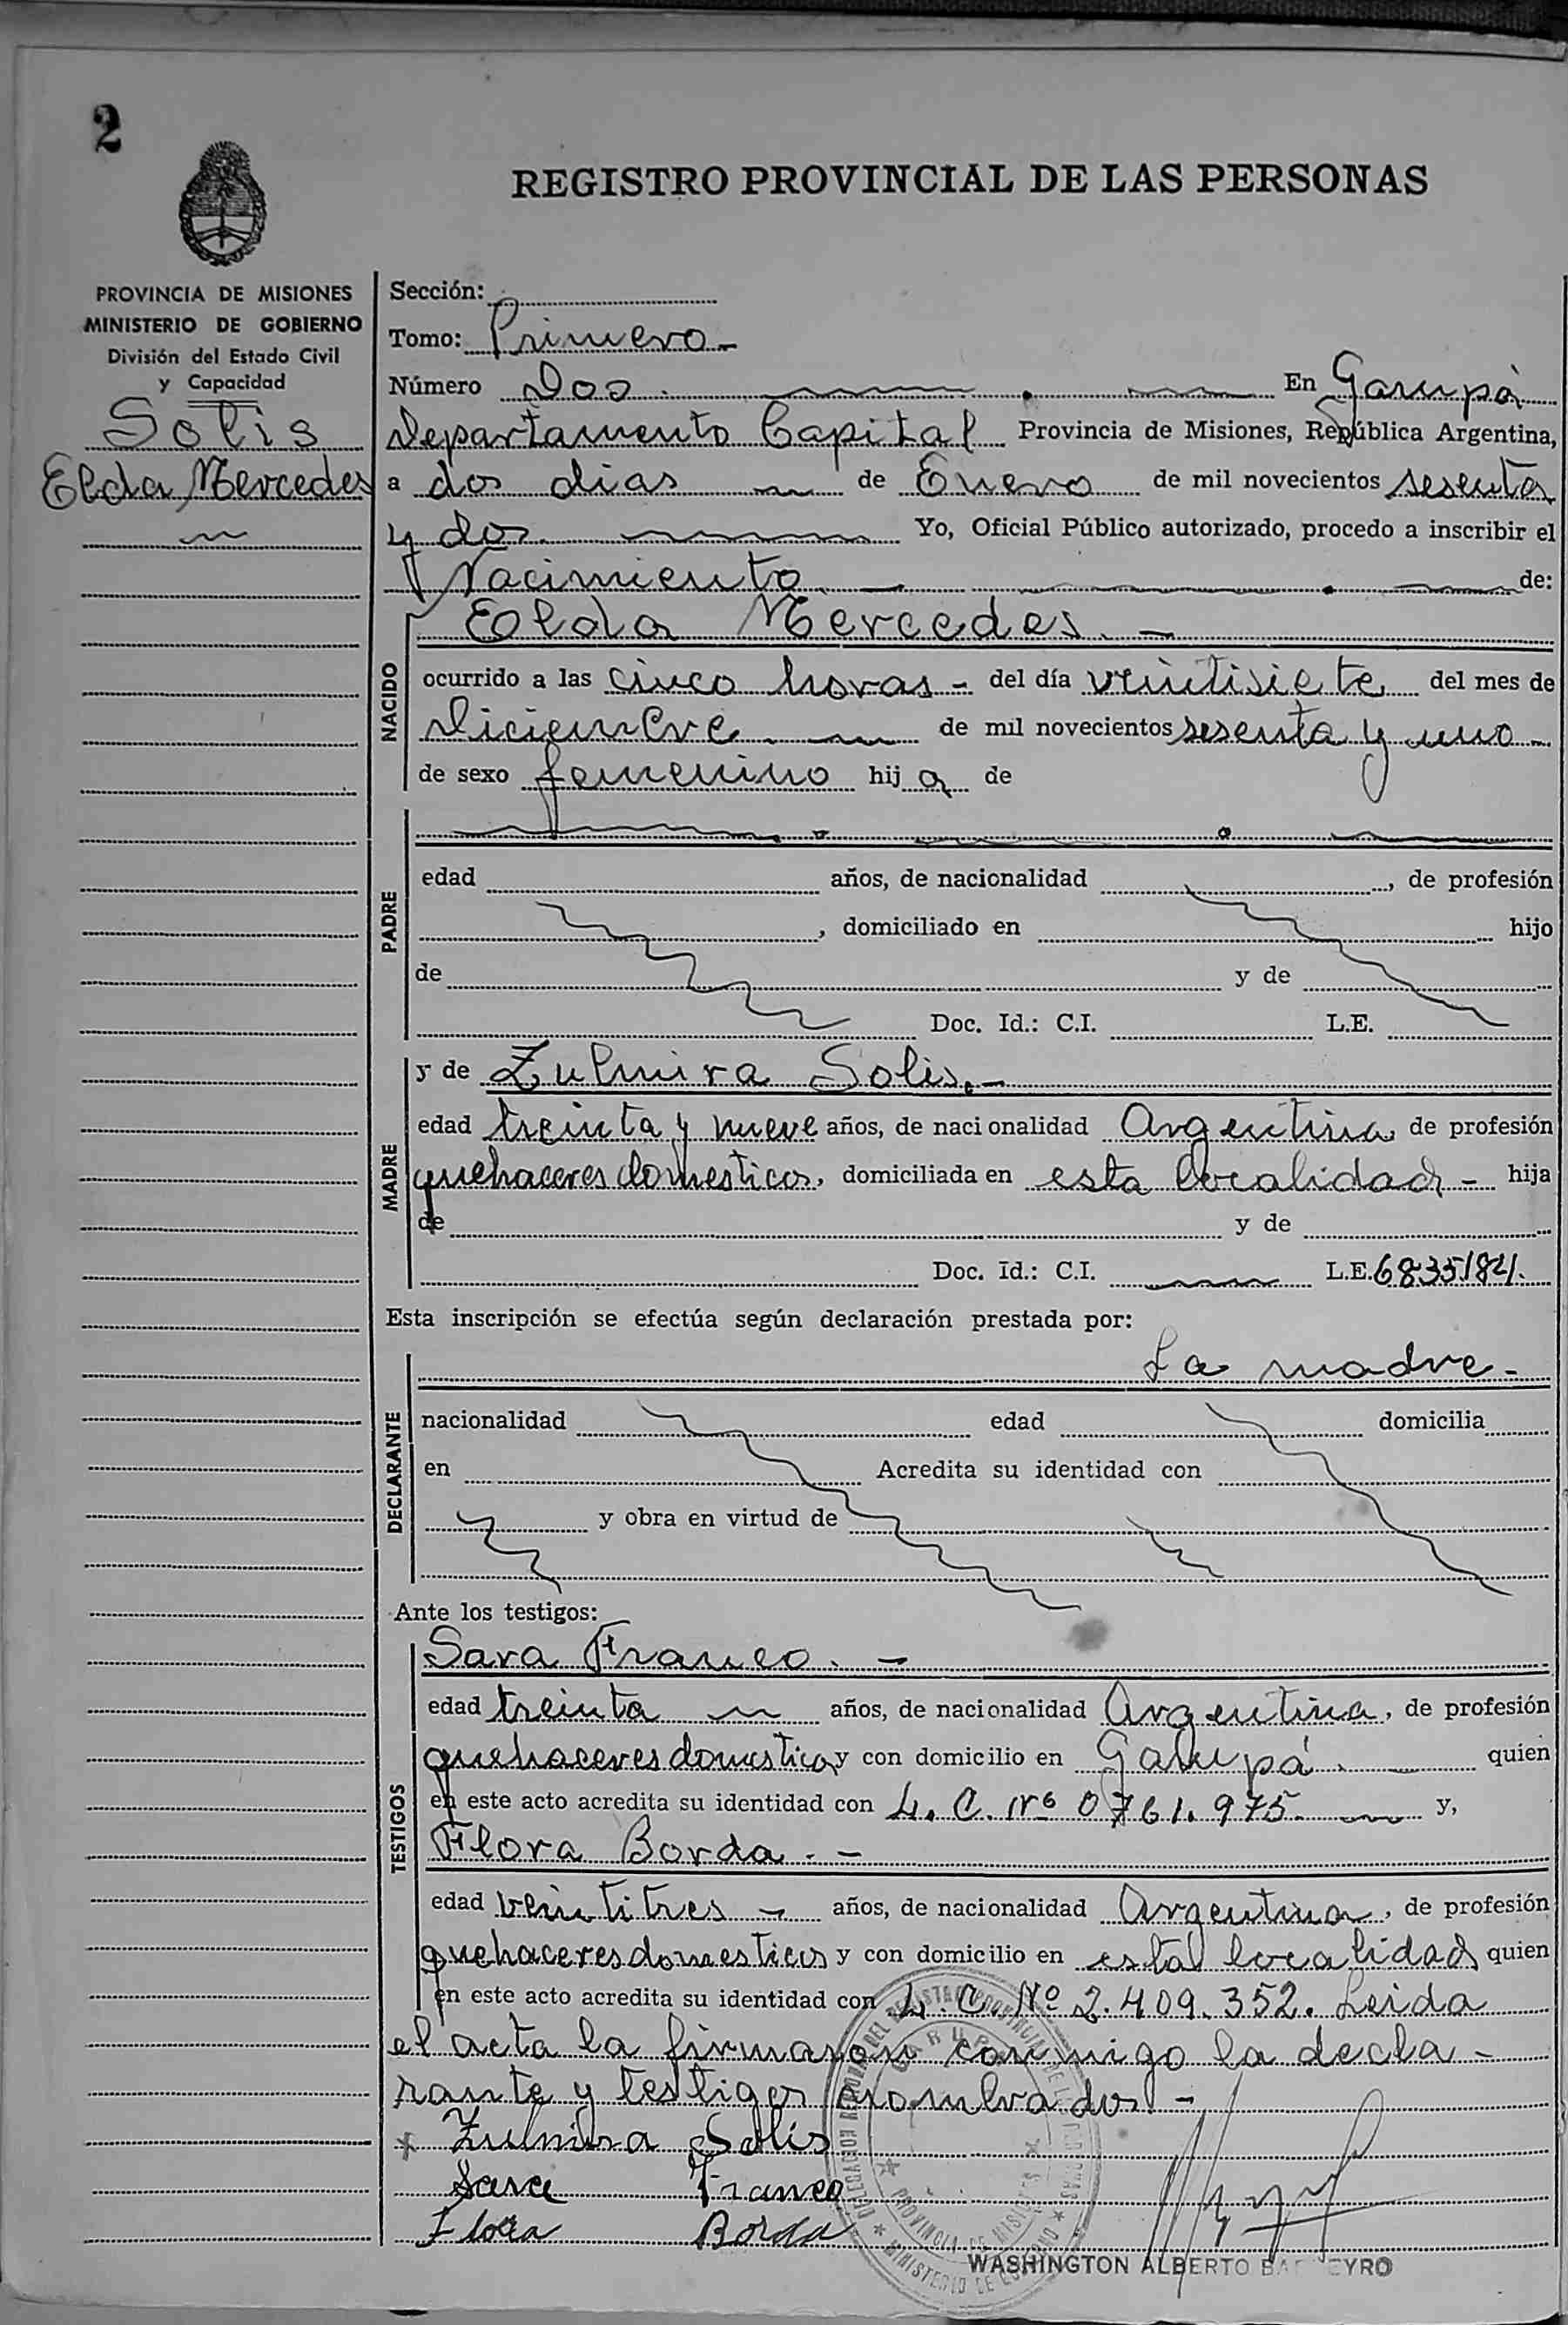 2
REGISTRO PROVINCIAL DE LAS PERSONAS
PROVINCIA DE MISIONES
MINISTERIO DE GOBIERNO
División del Estado Civil
y Capacidad
Solis
Elda Mercedes
Sección:
Tomo: Primero -
Número Dos. En Garupá
Departamento Capital Provincia de Misiones, República Argentina,
a dos dias de Enero de mil novecientos sesenta
y dos Yo, Oficial Público autorizado, procedo a inscribir el
Nacimiento - de:
NACIDO
Elda Mercedes. -
ocurrido a las cinco horas - del día veintisiete del mes de
Diciembre. de mil novecientos sesenta y uno -
de sexo femenino hij a de
PADRE
edad años, de nacionalidad , de profesión
, domiciliado en hijo
de y de
Doc. Id.: C.I. L.E.
MADRE
y de Zulmira Solis. -
edad treinta y nueve años, de nacionalidad Argentina, de profesión
quehaceres domesticos, domiciliada en esta localidad - hija
de y de
Doc. Id.: C.I. L.E. 6835184.
Esta inscripción se efectúa según declaración prestada por:
La madre -
DECLARANTE
nacionalidad edad domicilia
en Acredita su identidad con
y obra en virtud de
Ante los testigos:
TESTIGOS
Sara Franco. -
edad treinta años, de nacionalidad Argentina, de profesión
quehaceres domesticos y con domicilio en Garupá. quien
en este acto acredita su identidad con L. C. Nº 0761.975. y,
Flora Borda. -
edad veintitres - años, de nacionalidad Argentina, de profesión
quehaceres domesticos y con domicilio en esta localidad quien
en este acto acredita su identidad con L. C. Nº 2.409.352. Leida
el acta la firmaron conmigo la decla -
rante y testigos nombrados. -
x Zulmira Solis
Sara Franco
Flora Borda
DELEGACION REGISTRO PROVINCIAL DE LAS PERSONAS
GARUPA
PROVINCIA DE MISIONES
MINISTERIO DE GOBIERNO
WASHINGTON ALBERTO